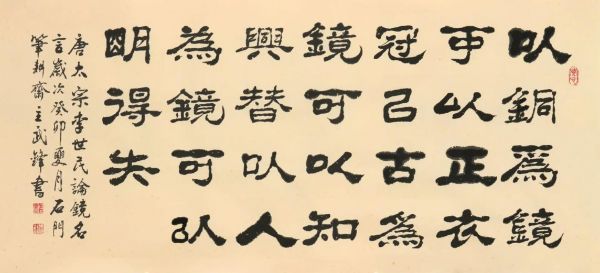 以銅爲鏡
可以正衣
冠㠯古爲
鏡可以知
興替以人
為鏡可以
明得失
唐太宗李世民論鏡名
言歲次癸卯夏月石門
筆耕齋主武鋒書